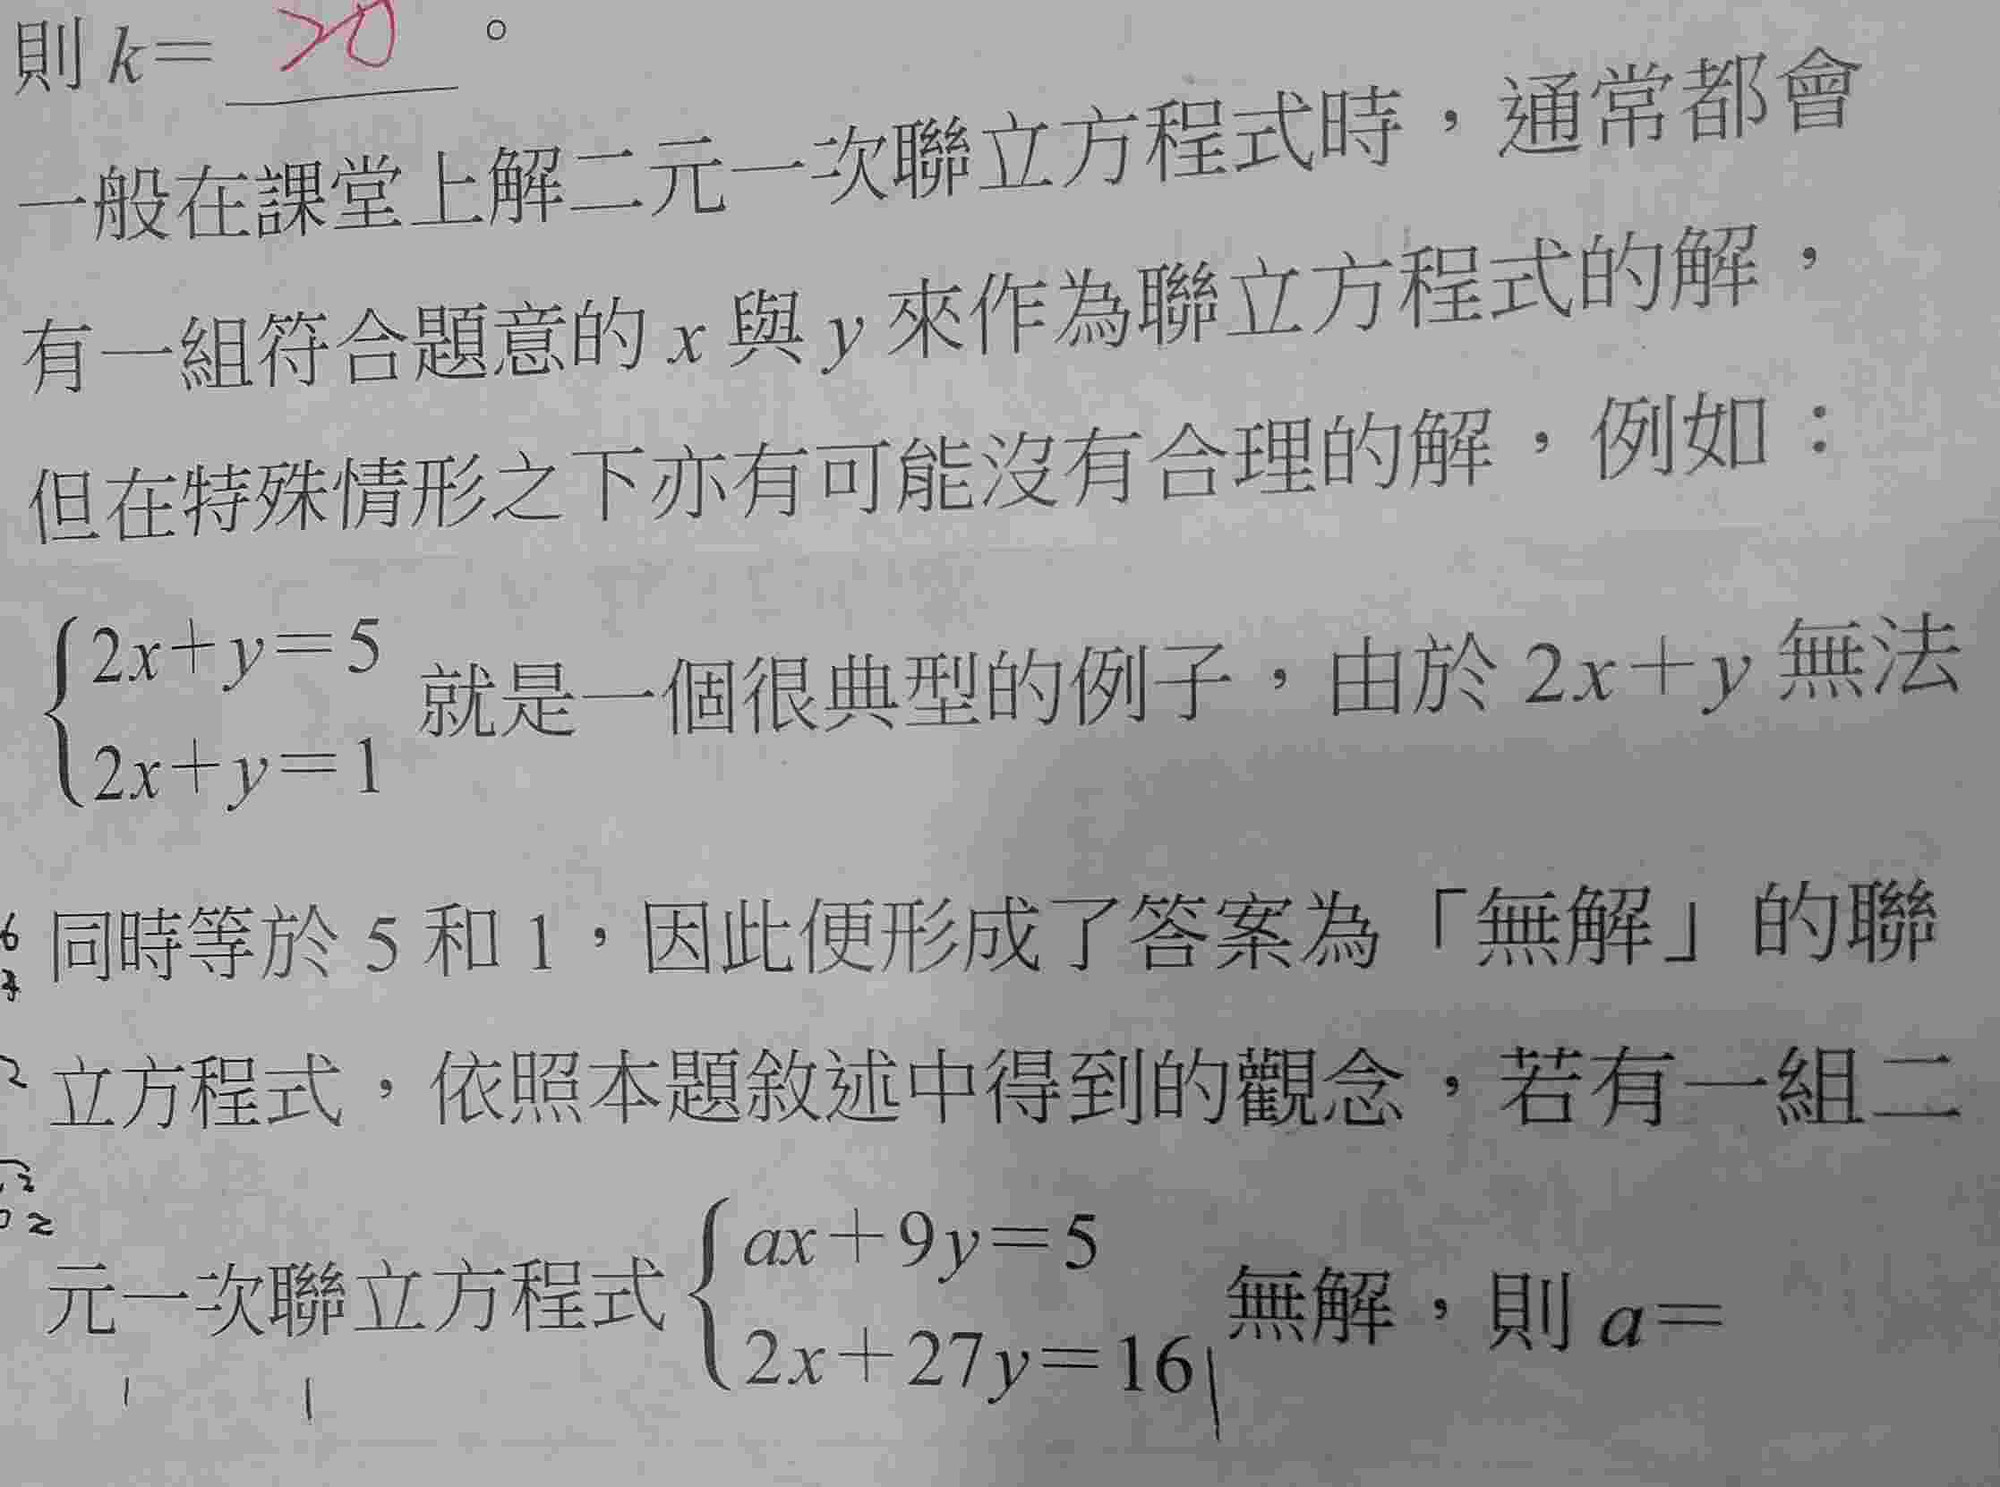 則 k= 20 。
一般在課堂上解二元一次聯立方程式時，通常都會
有一組符合題意的 x 與 y 來作為聯立方程式的解，
但在特殊情形之下亦有可能沒有合理的解，例如：
2x+y=5
2x+y=1
就是一個很典型的例子，由於 2x+y 無法
同時等於 5 和 1，因此便形成了答案為「無解」的聯
立方程式，依照本題敘述中得到的觀念，若有一組二
元一次聯立方程式
ax+9y=5
2x+27y=16
無解，則 a=